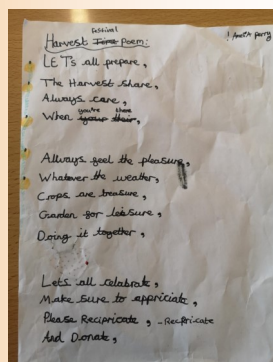 Harvest Festival Poem:
LETs all prepare,
The Harvest share,
Always care,
When you're there,
Always feel the pleasure,
Whatever the weather,
Crops are treasure,
Garden for leisure,
Doing it together,
Lets all celabrate,
Make sure to appriciate,
Please Recipricate, -Recipricate
And Donate,